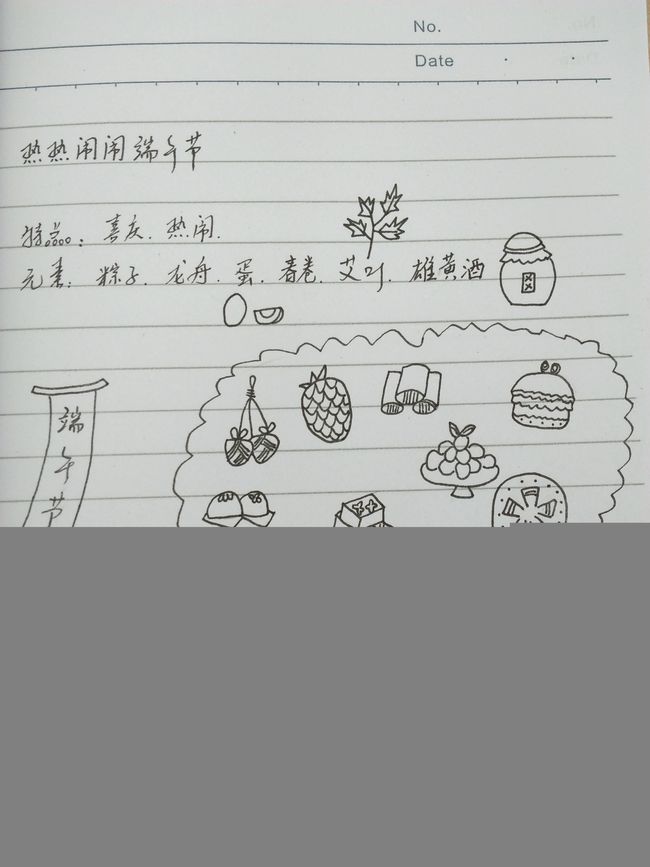 No.
Date
热热闹闹端午节
特点：喜庆. 热闹.
元素：粽子. 龙舟. 蛋. 春卷. 艾叶. 雄黄酒
端午节